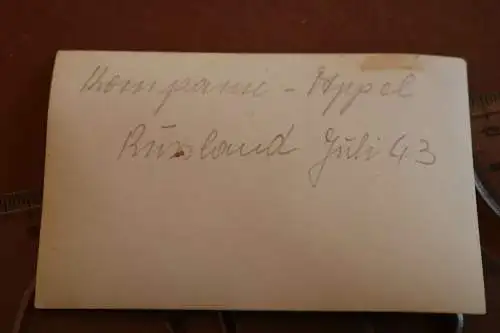 Kompanie - Appel
Russland Juli 43